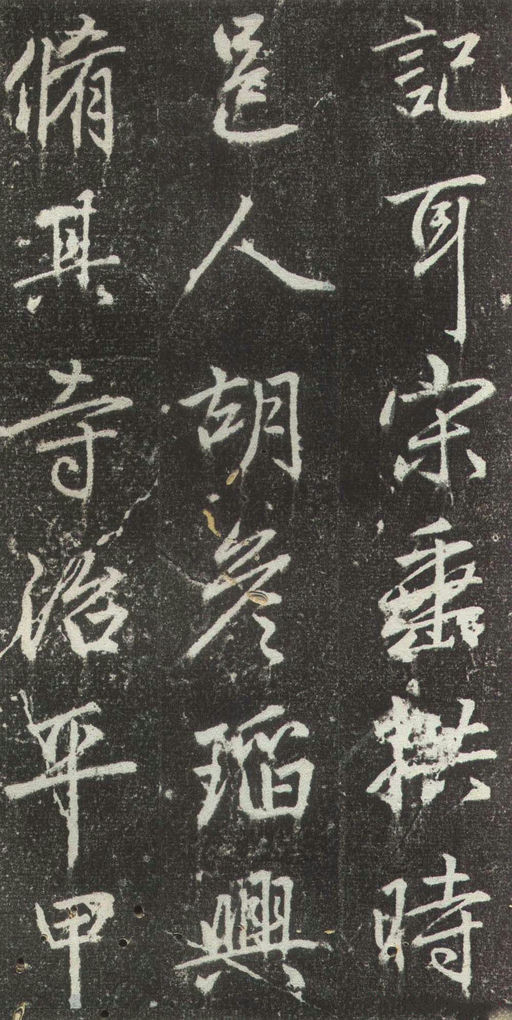 記耳宋垂拱時
邑人胡彥瑫興
脩其寺治平甲